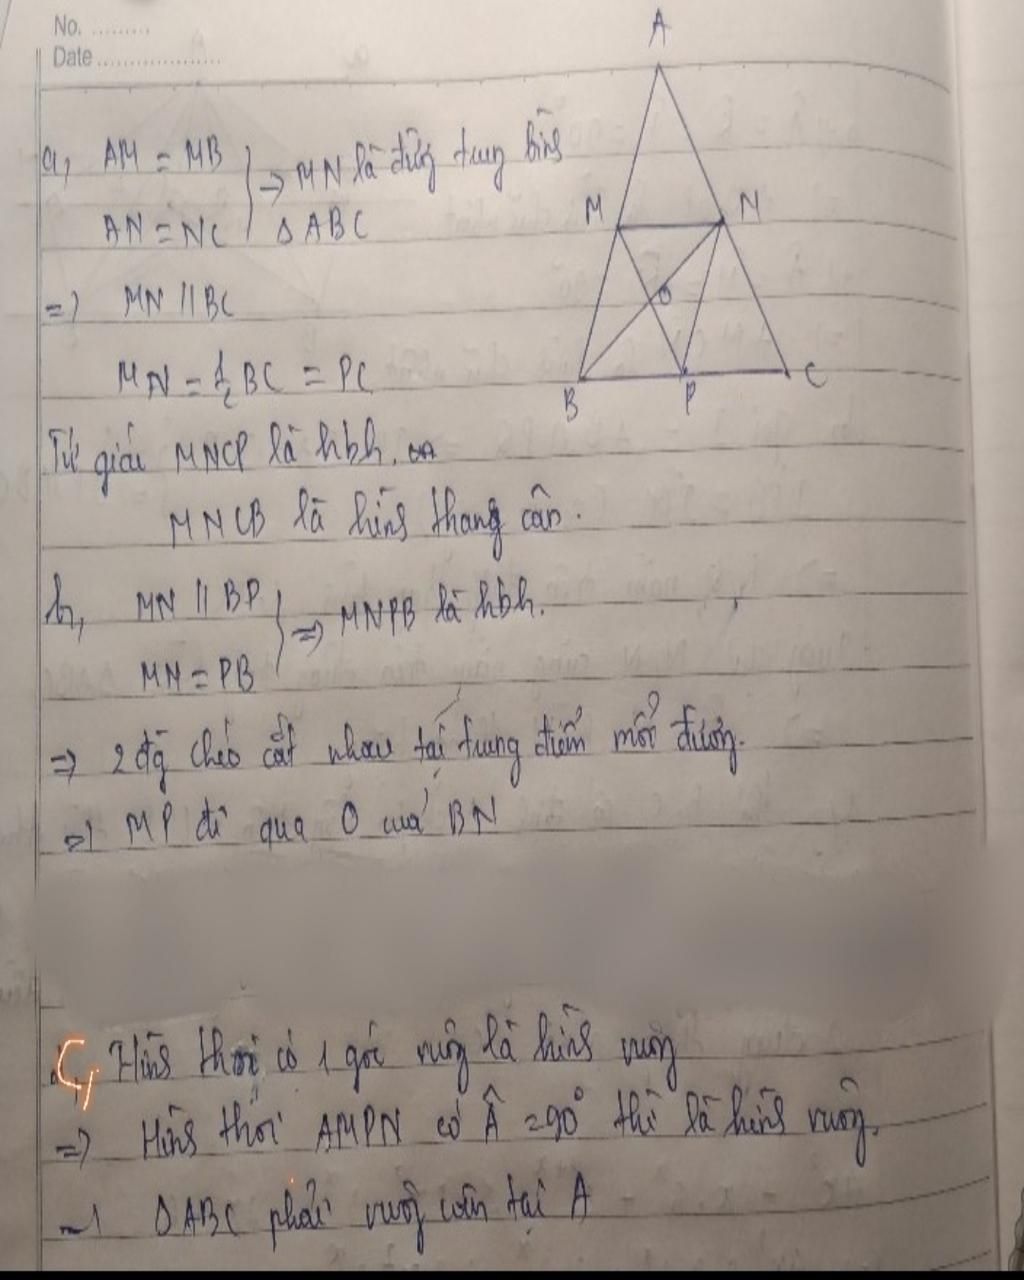 No. .........
Date ...................
A
a, AM = MB } => MN là đường trung bình
AN = NC Δ ABC
M N
=> MN // BC
O
MN = 1/2 BC = PC
B P C
Tứ giác MNCP là hbh.
MNCB là hình thang cân.
b, MN // BP } => MNPB là hbh.
MN = PB
=> 2 đg chéo cắt nhau tại trung điểm mỗi đường.
=> MP đi qua O của BN
C, Hình thoi có 1 góc vuông là hình vuông
=> Hình thoi AMPN có Â = 90° thì là hình vuông.
=> Δ ABC phải vuông cân tại A